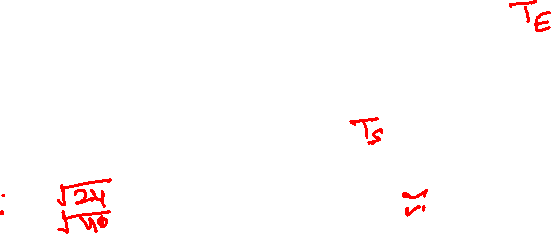 T_E
T_S
: √24 ≈
√40